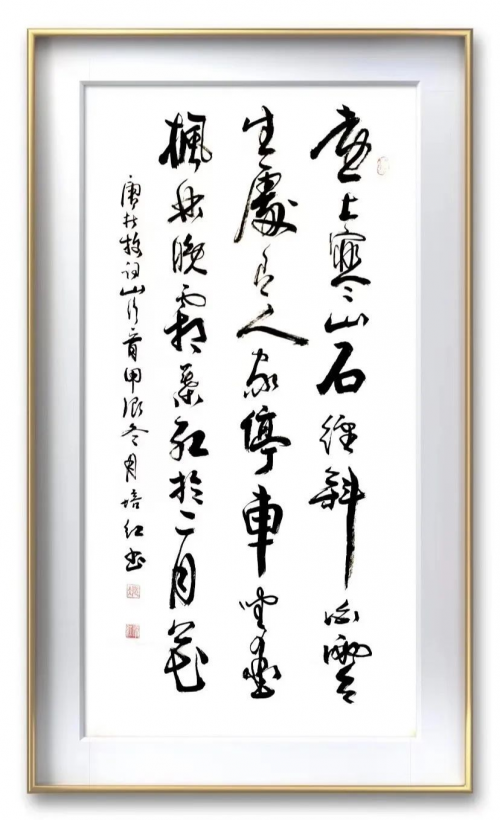 遠上寒山石徑斜白雲
生處有人家停車坐愛
楓林晚霜葉紅於二月花
唐杜牧詩山行一首甲辰冬月培红書